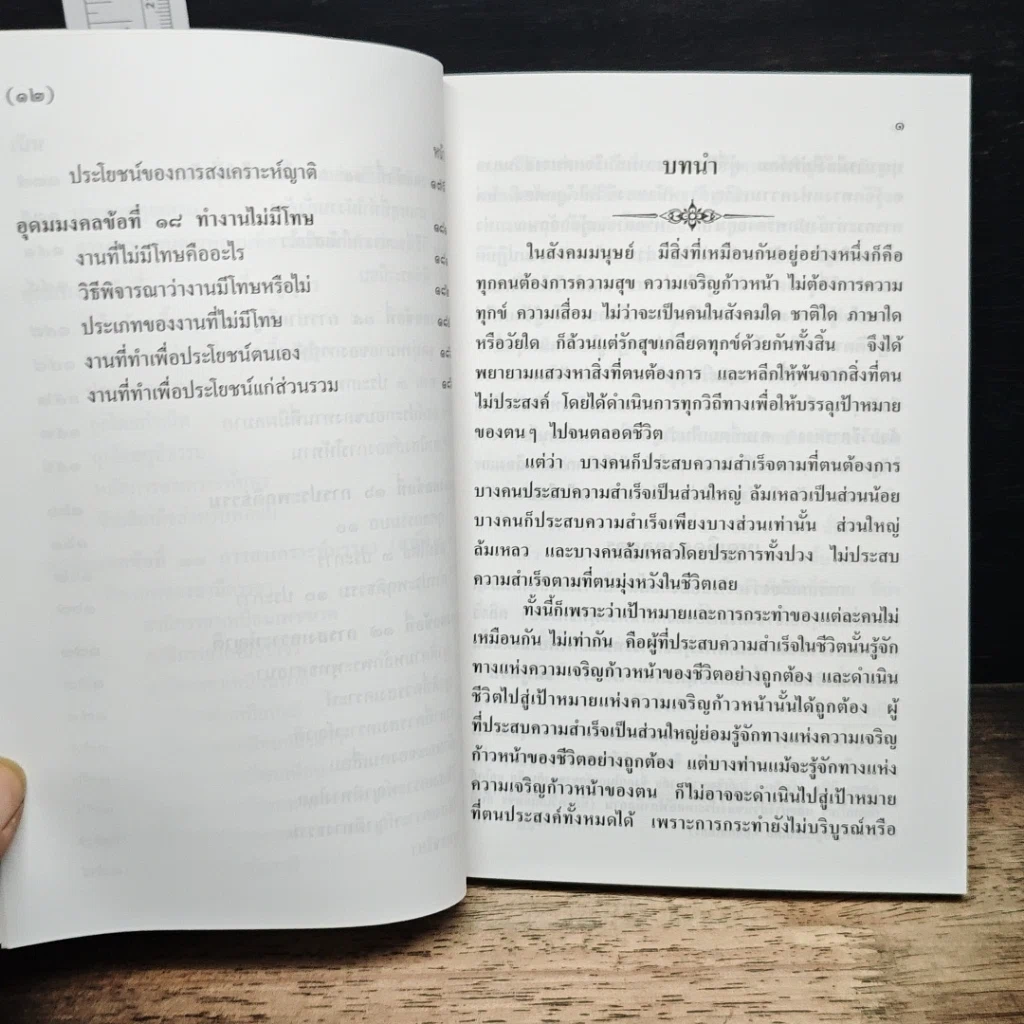 (๑๒)
ประโยชน์ของการสงเคราะห์ญาติ
อุดมมงคลข้อที่ ๑๘ ทำงานไม่มีโทษ
งานที่ไม่มีโทษคืออะไร
วิธีพิจารณาว่างานมีโทษหรือไม่
ประเภทของงานที่ไม่มีโทษ
งานที่ทำเพื่อประโยชน์ตนเอง
งานที่ทำเพื่อประโยชน์แก่ส่วนรวม
๑
บทนำ
ในสังคมมนุษย์ มีสิ่งที่เหมือนกันอยู่อย่างหนึ่งก็คือ
ทุกคนต้องการความสุข ความเจริญก้าวหน้า ไม่ต้องการความ
ทุกข์ ความเสื่อม ไม่ว่าจะเป็นคนในสังคมใด ชาติใด ภาษาใด
หรือวัยใด ก็ล้วนแต่รักสุขเกลียดทุกข์ด้วยกันทั้งสิ้น จึงได้
พยายามแสวงหาสิ่งที่ตนต้องการ และหลีกให้พ้นจากสิ่งที่ตน
ไม่ประสงค์ โดยได้ดำเนินการทุกวิถีทางเพื่อให้บรรลุเป้าหมาย
ของตนๆ ไปจนตลอดชีวิต
แต่ว่า บางคนก็ประสบความสำเร็จตามที่ตนต้องการ
บางคนประสบความสำเร็จเป็นส่วนใหญ่ ล้มเหลวเป็นส่วนน้อย
บางคนก็ประสบความสำเร็จเพียงบางส่วนเท่านั้น ส่วนใหญ่
ล้มเหลว และบางคนล้มเหลวโดยประการทั้งปวง ไม่ประสบ
ความสำเร็จตามที่ตนมุ่งหวังในชีวิตเลย
ทั้งนี้ก็เพราะว่าเป้าหมายและการกระทำของแต่ละคนไม่
เหมือนกัน ไม่เท่ากัน คือผู้ที่ประสบความสำเร็จในชีวิตนั้นรู้จัก
ทางแห่งความเจริญก้าวหน้าของชีวิตอย่างถูกต้อง และดำเนิน
ชีวิตไปสู่เป้าหมายแห่งความเจริญก้าวหน้านั้นได้ถูกต้อง ผู้
ที่ประสบความสำเร็จเป็นส่วนใหญ่ย่อมรู้จักทางแห่งความเจริญ
ก้าวหน้าของชีวิตอย่างถูกต้อง แต่บางท่านแม้จะรู้จักทางแห่ง
ความเจริญก้าวหน้าของตน ก็ไม่อาจจะดำเนินไปสู่เป้าหมาย
ที่ตนประสงค์ทั้งหมดได้ เพราะการกระทำยังไม่บริบูรณ์หรือ